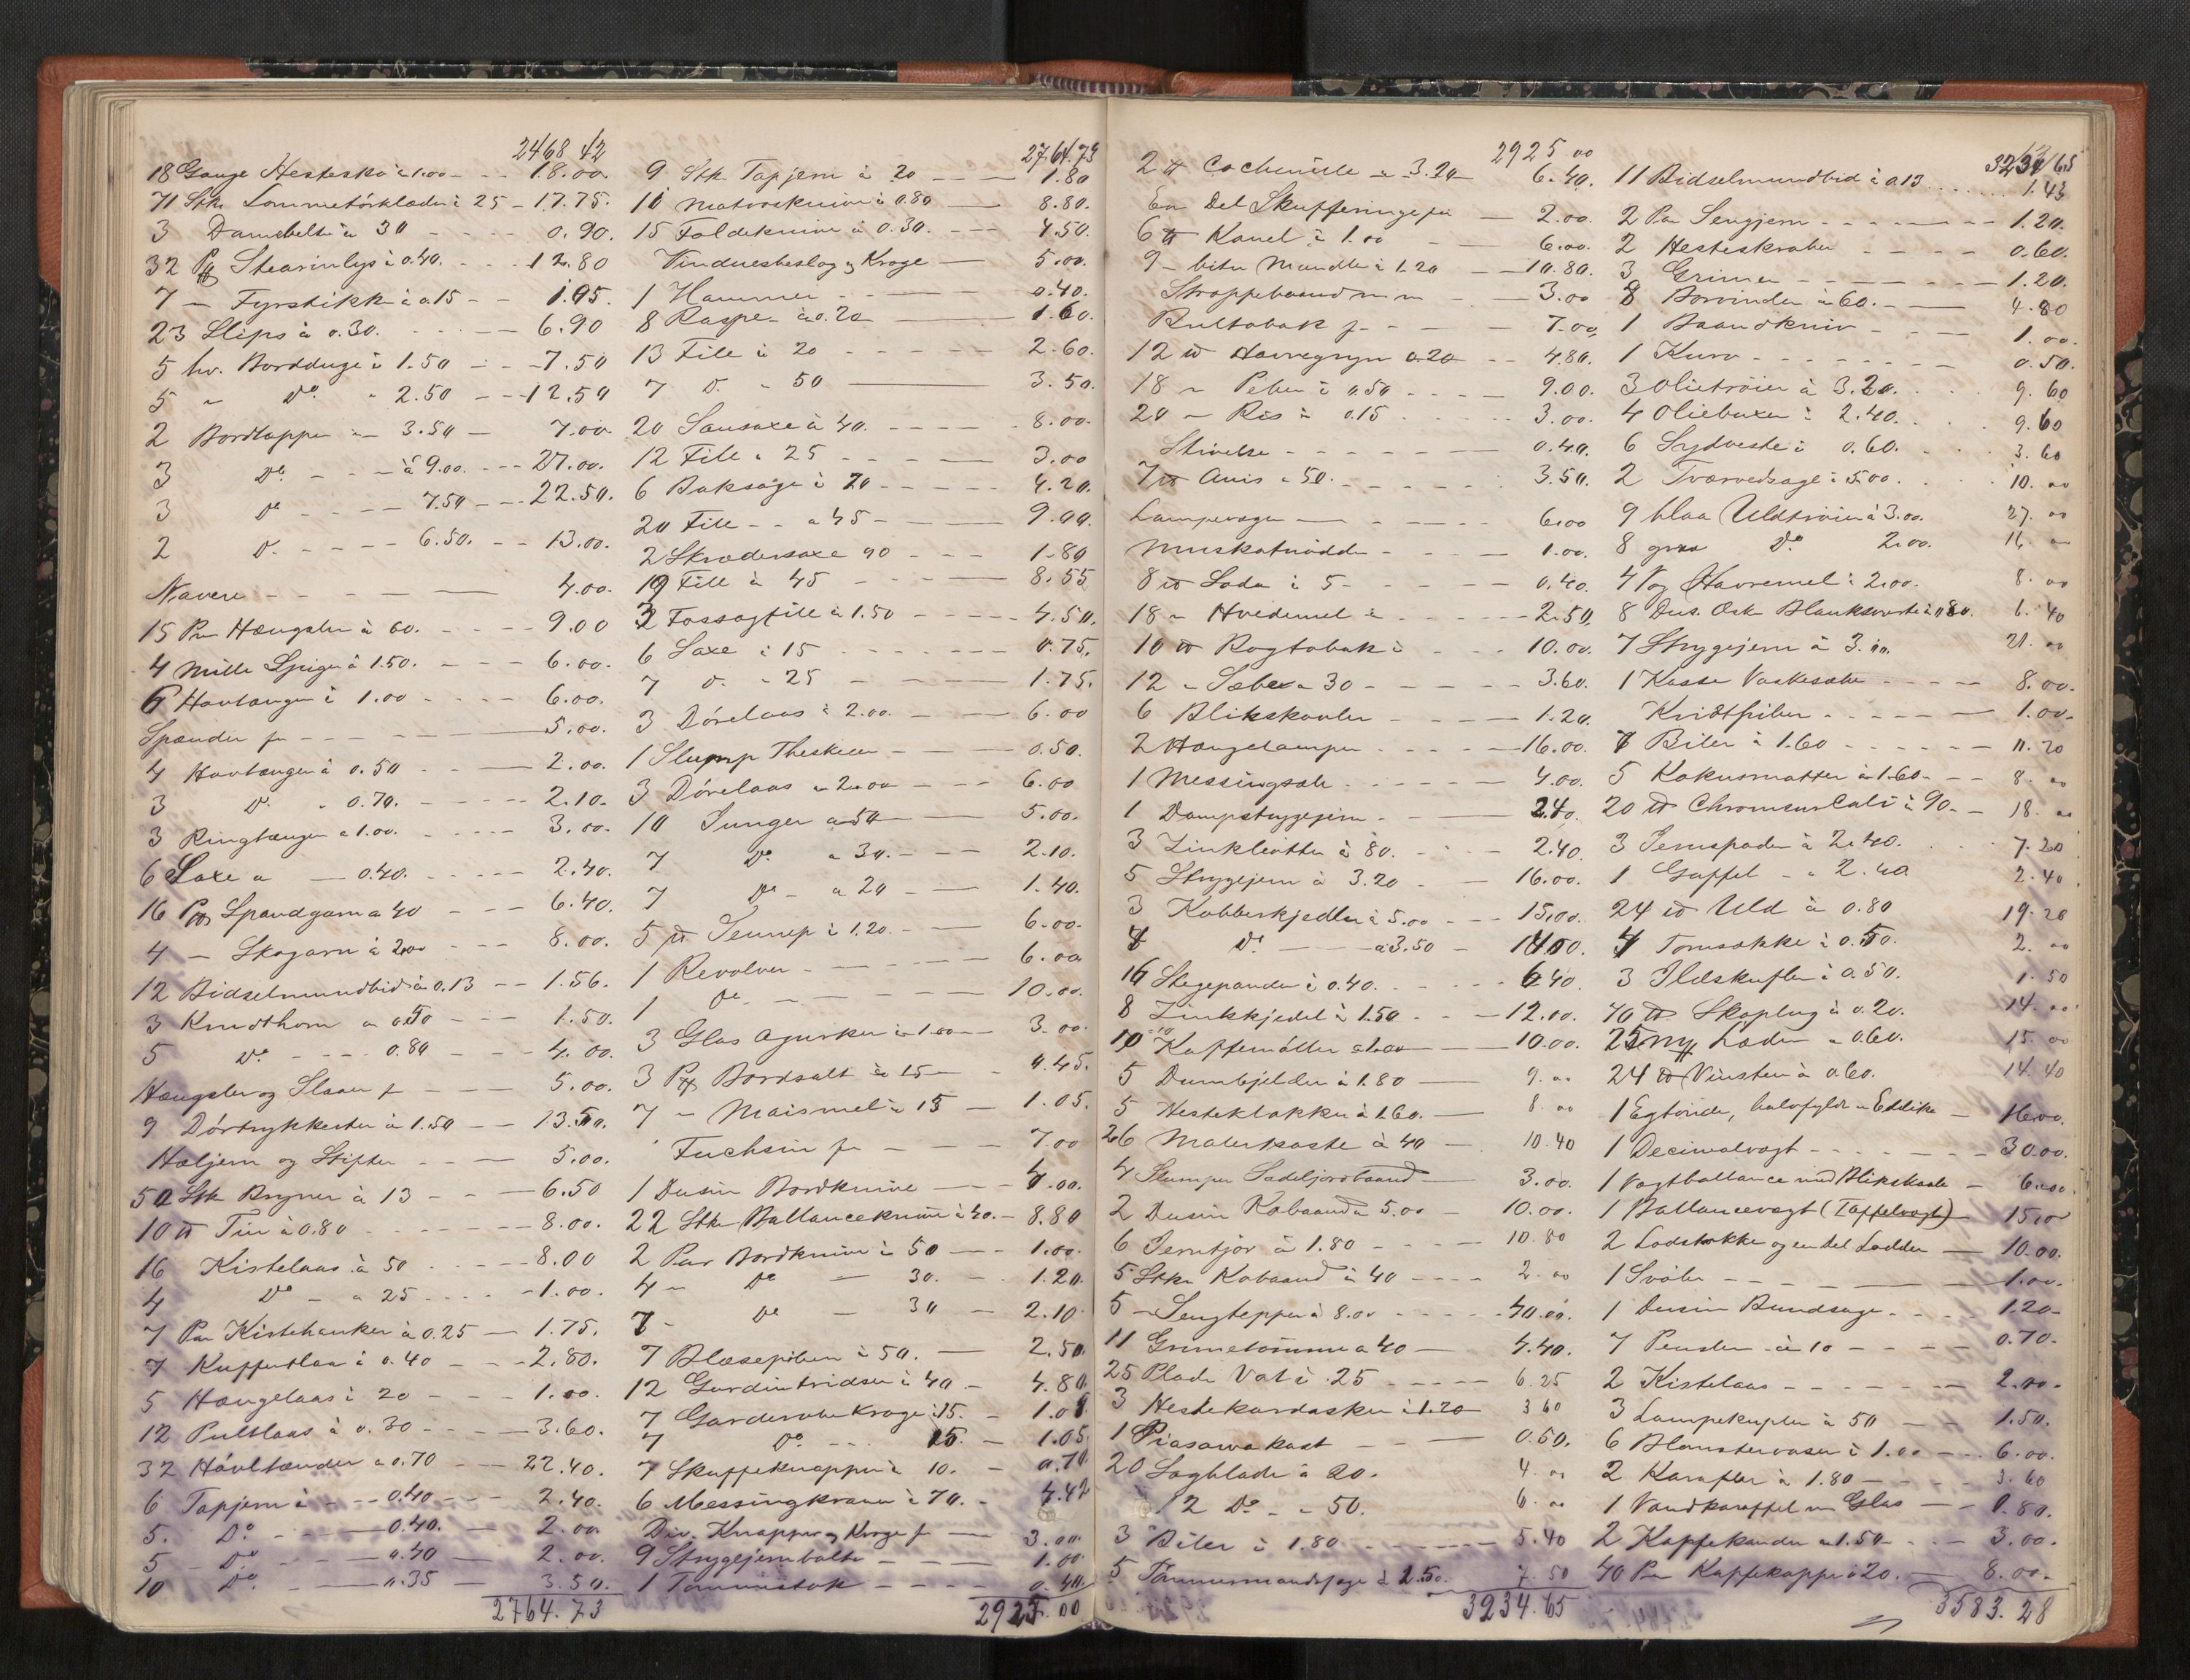 2468 42
18 Gange Hestesko à 1.00 - - 18.00.
71 Stk. Lommetørklæder à 25 - 17.75.
3 Damebelter à 30 - - - - 0.90.
32 Pk Stearinlys à 0.40. - - - 12.80
7 - Fyrstikker à 0.15 - - 1.05.
23 Slips à 0.30. - - - - 6.90
5 hv. Bordduge à 1.50 - - - 7.50
5 " Do. " 2.50 - - 12.50
2 Bordtepper - 3.50 - 7.00.
3 Do. - - - à 9.00. - - - 27.00.
3 Do - - - - 7.50 - - - 22.50.
2 D. - - - - - 6.50. - - 13.00.
Navere - - - - 4.00.
15 Par Hængsler à 60. - - - - 9.00
4 Mille Spiger à 1.50. - - - 6.00.
6 Hovtænger à 1.00 - - - - 6.00.
Spænder for - - - - 5.00.
4 Hovtænger à 0.50 - - - 2.00.
3 Do. " 0.70. - - - - - 2.10.
3 Ringtænger a 1.00. - - - - 3.00.
6 Saxe a - 0.40. - - - - - 2.40.
16 Pk Spandgarn a 40 - - - 6.40.
4 - Skogarn à 2.00 - - - 8.00.
12 Bidselmundbid à 0.13 - - 1.56.
3 Krudthorn a 0.50 - - - 1.50.
5 Do. - - - - 0.80 - - - 4.00.
Hængsler og Slaaer f - - - 5.00.
9 Dørtrykkerter à 1.50 - - 13.50.
Hæljern og Stifter - - - 5.00.
50 Stk Bryner à 13 - - - 6.50
10 ℔ Tin à 0.80 - - - - - - 8.00.
16 Kistelaas à 50 - - - - - 8.00
4 Do - " 25 - - - - - 1.00.
7 Par Kistehanker à 0.25 - 1.75.
7 Kuffertlaa à 0.40 - - - 2.80.
5 Hængelaas à 20 - - - 1.00.
12 Pultlaas à 0.30 - - - - 3.60.
32 Høvltænder a 0.70 - - - 22.40.
6 Tapjern à - - - 0.40 - - - 2.40.
5. Do - - - - - 0.40. - 2.00
5 - Do - - - - 0.40 - 2.00.
10 Do. - - 0.35 - 3.50.
2764.73
2764.73
9 Stk. Tapjern à 20 - - - 1.80
11 Matrosknive à 0.80 - 8.80.
15 Foldeknive à 0.30. - - - 4.50.
Vinduesbeslag og Kroge - 5.00.
1 Hammer - - - - 0.40.
8 Raspe - à 0.20 - 1.60.
13 File à 20 - - - - - 2.60.
7 D. " 50 - 3.50.
20 Sausaxe à 40. - - - - 8.00.
12 File " 25 - - - - - 3.00
6 Baksage à 70 - - - - 4.20.
20 File - - a 45 - - 9.00.
2 Skrædersaxe 90 - - - 1.80
19 File à 45 - - - - 8.55
3 Fossagfile à 1.50 - - - - 4.50.
6 Saxe à 15 - - - - - - 0.75.
7 D. " 25 - - - 1.75.
3 Dørelaas à 2.00. - - 6.00
1 Slump Theskeer - - 0.50.
3 Dørelaas a 2.00 - - - 6.00
10 Tunger a 50 - 5.00.
7 Do. a 30. - - - 2.10.
7 Do - a 20 - - 1.40.
5 ℔ Sennep à 1.20. - - 6.00.
1 Revolver - - - - - 6.00
1 Do - - - - - 10.00.
3 Glas Agurker à 1.00 - - 3.00.
3 Pk Bordsalt à 15 - - 0.45.
7 - Maismel à 15 - 1.05.
Fuchsin for - - - 7.00
1 Dusin Bordknive - - 4.00.
22 Stk Ballanceknive à 40. - 8.80
2 Par Bordknive à 50 - - 1.00.
4 - Do - 30. - - 1.20.
7 - Do - 30 - 2.10
7 Blæsepiber à 50. - 2.50.
12 Gardintridser à 40 - 4.80
7 Garderobe Kroge à 15. - 1.05
7 Do. - - - 15. - 1.05.
7 Skuffeknapper à 10. - 0.70
6 Messingkraner à 70. - 4.42
Div. Knapper og Kroge f - 3.00.
9 Strygejernbolte - - - - 1.00
1 Tommestok - - - - 0.40.
2925.00
2925 00
2 ℔ Cochenille - 3.20 6.40.
En Del Skufferinge for - 2.00.
6 ℔ Kanel à 1.00 - - 6.00.
9 - bitre Mandler à 1.20 - - 10.80.
Stroppebaand m.m - - 3.00
Rultobak f - - - 7.00,
12 ℔ Havregryn 0.20 - - 4.80.
18 " Peber à 0.50 - - - - 9.00.
20 - Ris à 0.15 - - - - 3.00.
Stivelse - - - - - - 0.40.
7 ℔ Anis à 50. - - - - - 3.50.
Lampevæger - - - - - 6.00
Muskatnødder - - - 1.00.
8 ℔ Soda à 5 - - - - - 0.40.
18 - Hvedemel à - - - - - 2.50,
10 ℔ Røgtobak à - - - 10.00.
12 " Sæbe a 30 - - - - - 3.60.
6 Blikskovler - - - - 1.20.
2 Hængelamper - - - - - 16.00.
1 Messingsole - - - - - - 4.00.
1 Dampstrygejern - - - 2.40.
3 Zinkbøtter à 80. - - - 2.40.
5 Strygejern à 3.20 - - 16.00.
3 Kobberkjedler à 5.00 - - - 15.00.
4 Do - - a 3.50 - 14.00.
16 Stegepander à 0.40. - - - - - 6.40.
8 Zinkkjedel à 1.50 - - - 12.00.
10 Kaffemøller a 1.00 - 10.00.
5 Dumbjelder à 1.80 - 9.00
5 Hesteklokker à 1.60. - 8.00
26 Malerkoste à 40 - 10.40
4 Slumper Sadelgjordbaand - 3.00.
2 Dusin Kobaand a 5.00 - 10.00.
6 Jerntjor à 1.80 - - - - 10.80
5 Stkr Kobaand à 40 - - - - 2.00
5 - Sengtepper à 8.00 - - - - - 40.00.
11 Grimetømme a 40 - 4.40.
25 Plader Vat à .25 - - - - - 6.25
3 Hestekardasker à 1.20 3 60
1 Piasavakost - - - 0.50.
20 Sagblade à 20. 4.00
12 Do. - 50. 6.00
3 Biler à 1.80 - - - - - - 5.40
5 Tømmermandssage à 1.50. 7.50
3234.65
3234 65
11 Bidselmundbid à 0.13 - - - - - 1.43
2 Par Sengjern - - - - - - - 1.20.
2 Hesteskraber - - - - - 0.60.
3 Grimer - - - - - - 1.20.
8 Borvinder à 60. - 4.80
1 Baandkniv - - - - 1.00.
1 Kurv - - - - - - - 0.50.
3 Olietrøier à 3.20. - - 9.60
4 Oliebuxer à 2.40. - - - 9.60
6 Sydveste à 0.60. - - 3.60
2 Tværvedsage à 5.00. - - 10.00
9 blaa Uldtrøier à 3.00. 27.00
8 graa Do 2.00. 16.00
4 Vog Havremel à 2.00. 8.00
8 Dus. Æsk. Blanksværte à 0.80. 6.40
7 Strygejern à 3.00. 21.00
1 Kasse Vaskesæbe - - - - - 8.00.
Kridtpiber - - - - - - 1.00.
7 Biler à 1.60 - - - - - - 11.20
5 Kokusmatter à 1.60. - - 8.00
20 ℔ Chromsurkali à 90. - 18.00
3 Jernspader à 2.40. - - - 7.20
1 Gaffel - " 2.40 2.40
24 ℔ Uld à 0.80 19.20
4 Tomsække à 0.50. 2.00
3 Ildskufler à 0.50. 1.50
70 ℔ Skoplug à 0.20. 14.00
25 Læder a 0.60. 15.00
24 ℔ Vinsten à 0.60. 14.40
1 Egtønde, halvfyldt m Eddike - 16.00.
1 Decimalvægt - - - - - - - 30.00.
1 Vægtballance med Blikskaale - 6.00.
1 Ballancevægt (Taffelvægt) 15.00
2 Lodstokke og en Del Lodder - 10.00.
1 Svøbe - - - - 1.00.
1 Dusin Bundsage - - - - 1.20
7 Pensler à 10 - - - - 0.70.
2 Kistelaas - - - - - - - 2.00.
3 Lampekupler à 50 - - 1.50.
6 Blomstervaser à 1.00 - - - 6.00.
2 Karafler à 1.80 - - - - 3.60
1 Vandkaraffel m Glas - - 0.80.
2 Kaffekander a 1.50 - - - 3.00.
40 Par Kaffekopper à 20. - 8.00.
3583.28